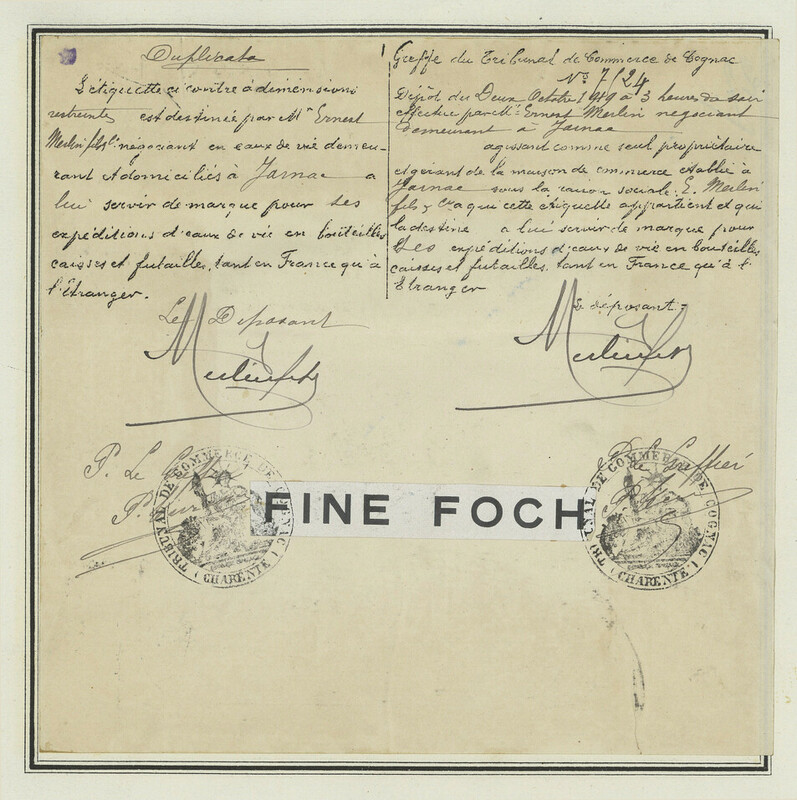 Duplicata
L'étiquette ci contre à dimensions
restreintes est destinée par Mr Ernest
Merlin fils négociant en eaux de vie demeu-
rant et domiciliés à Jarnac a
lui servir de marque pour ses
expéditions d'eaux de vie en bouteilles
caisses et futailles, tant en France qu'à
l'Etranger.
Le Déposant
Merlin fils
P. Le Greffier
Greffe du Tribunal de Commerce de Cognac
No 7124
Dépôt du Deux Octobre 1919 à 3 heures du soir
effectué par Mr Ernest Merlin négociant
demeurant à Jarnac
agissant comme seul propriétaire
et gérant de la maison de commerce établie à
Jarnac sous la raison sociale: E. Merlin
fils & Cie à qui cette étiquette appartient et qui
la destine a lui servir de marque pour
Ses expéditions d'eaux de vie en bouteilles
caisses et futailles, tant en France qu'à l'
Etranger
Le déposant =
Merlin fils
P. Le Greffier
TRIBUNAL DE COMMERCE DE COGNAC
(CHARENTE)
FINE FOCH
TRIBUNAL DE COMMERCE DE COGNAC
(CHARENTE)